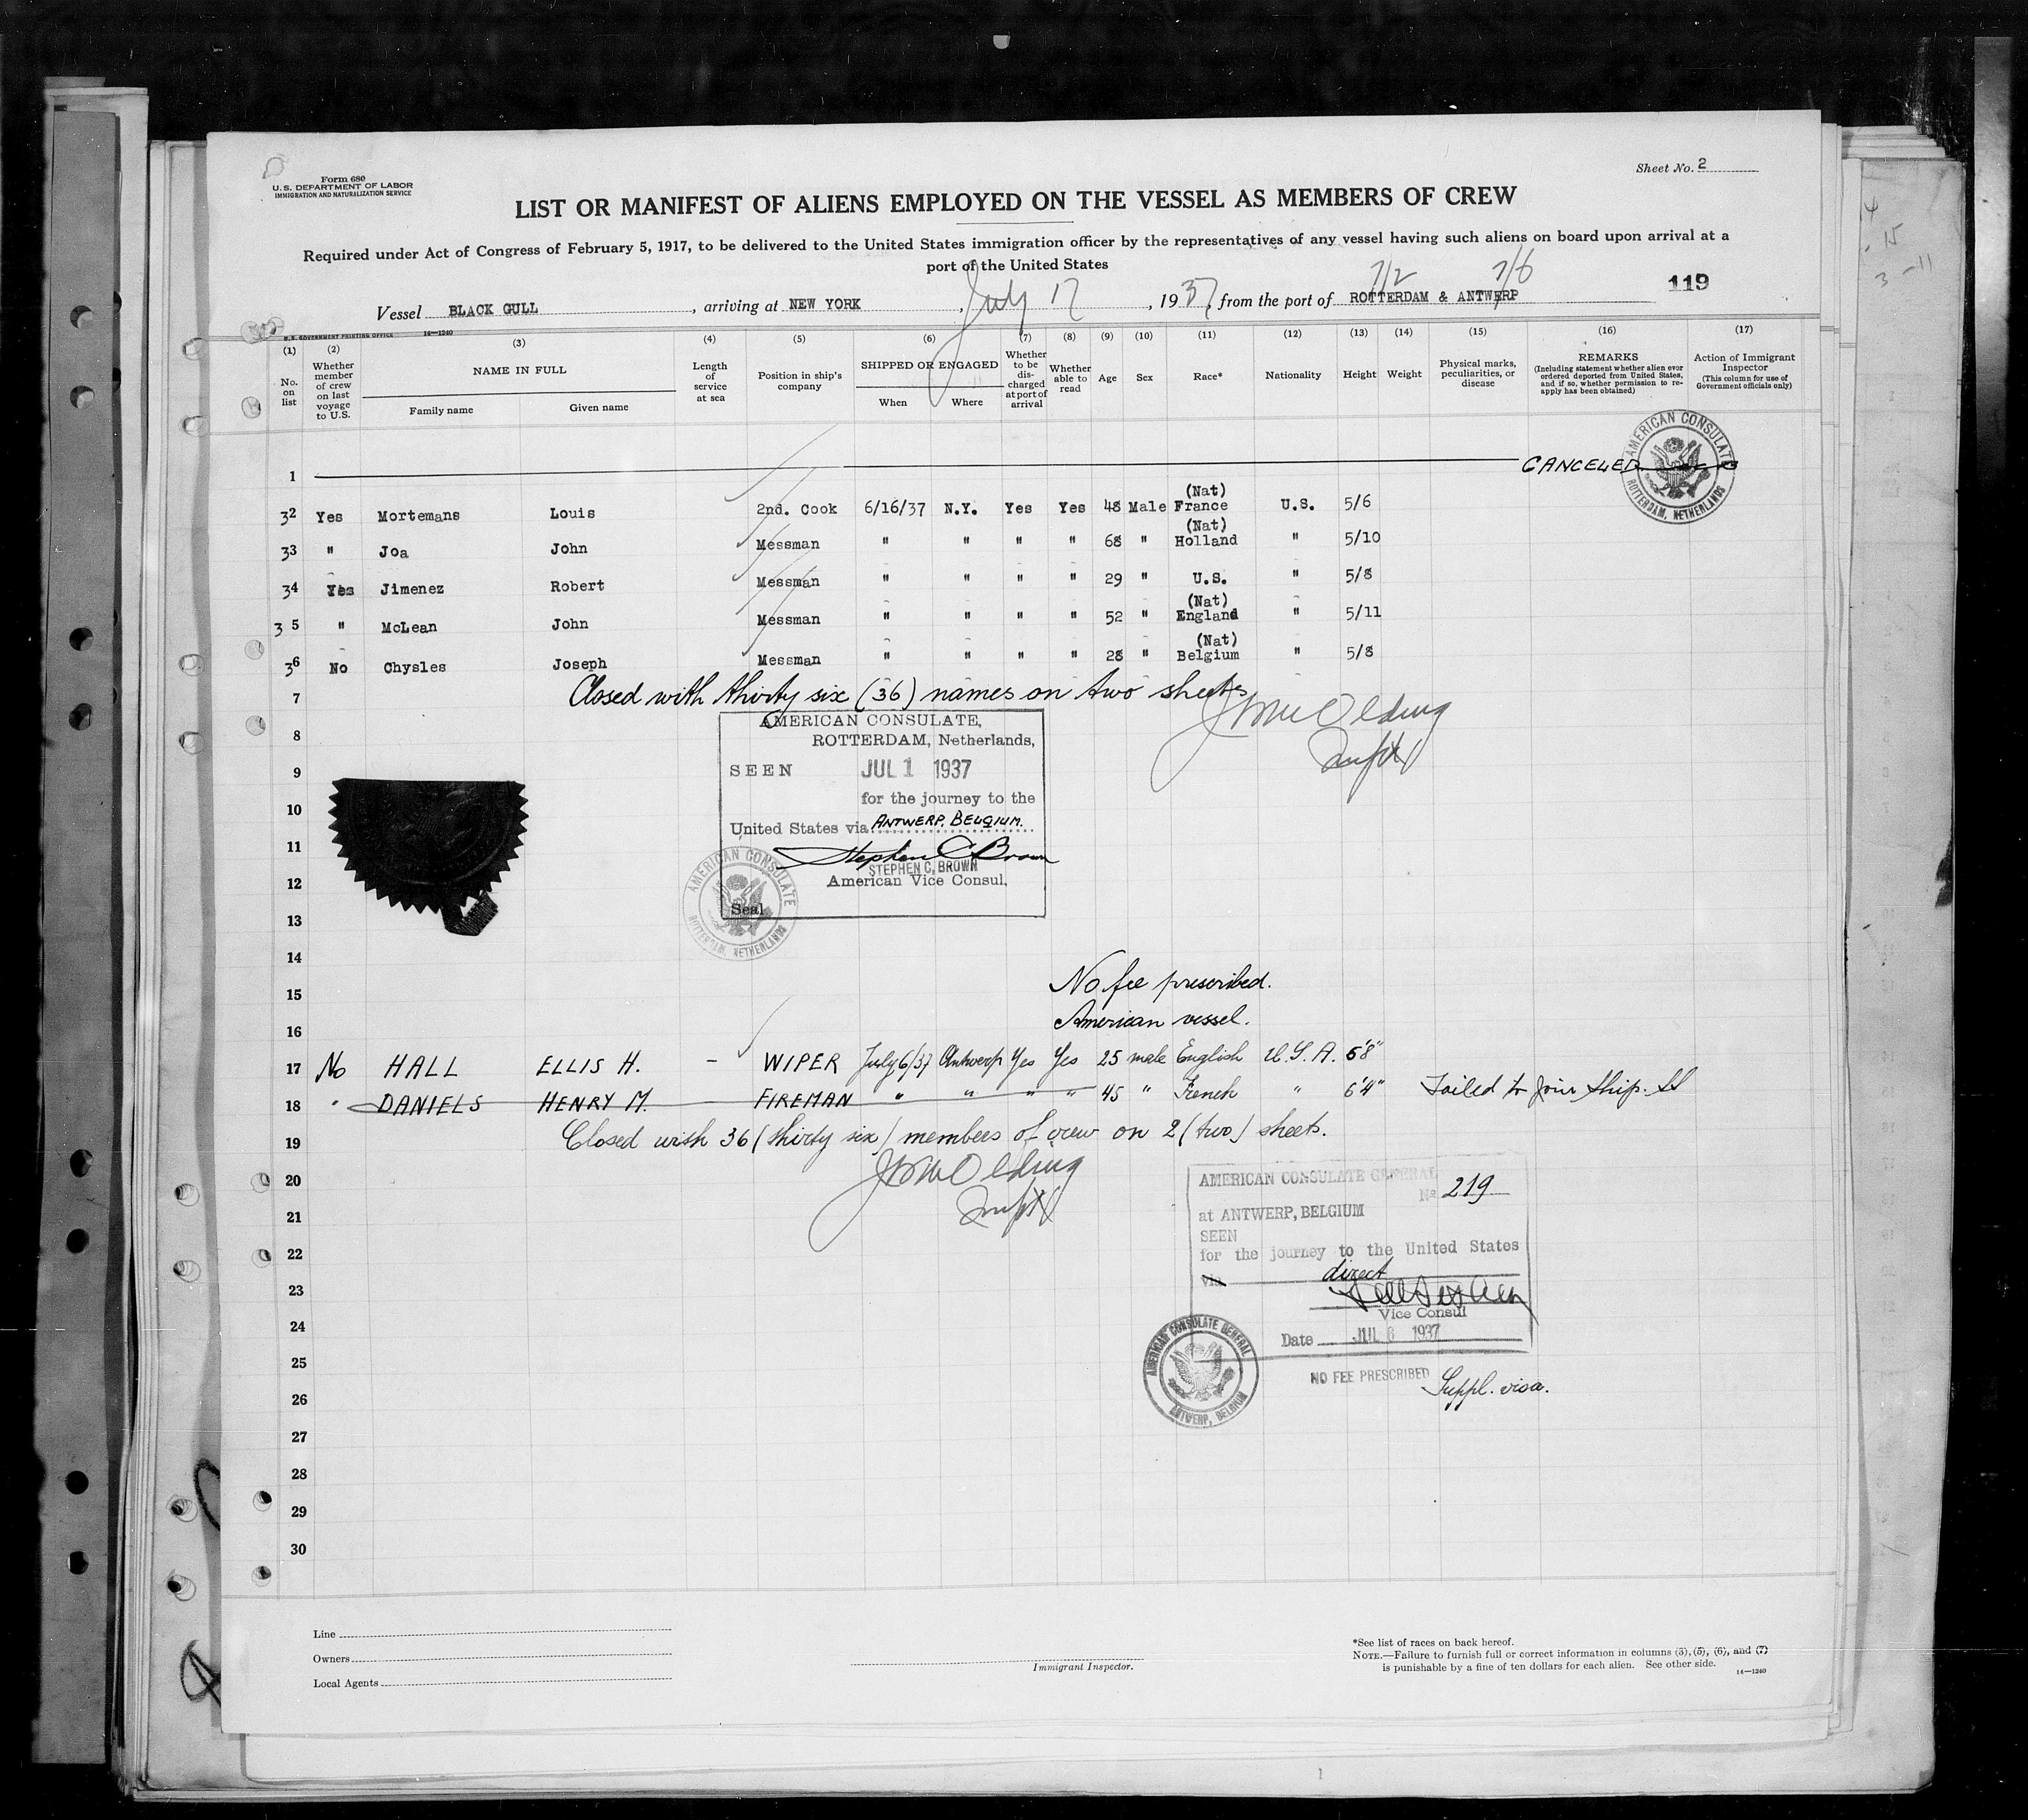 Form 680
U.S. DEPARTMENT OF LABOR
IMMIGRATION AND NATURALIZATION SERVICE
Sheet No. 2
LIST OR MANIFEST OF ALIENS EMPLOYED ON THE VESSEL AS MEMBERS OF CREW
Required under Act of Congress of February 5, 1917, to be delivered to the United States immigration officer by the representatives of any vessel having such aliens on board upon arrival at a
port of the United States
7/2 7/6
119
Vessel BLACK GULL, arriving at NEW YORK, July 17, 1937, from the port of ROTTERDAM & ANTWERP
U.S. GOVERNMENT PRINTING OFFICE 14—1240
(1) (2) (3) (4) (5) (6) (7) (8) (9) (10) (11) (12) (13) (14) (15) (16) (17)
No. on list
Whether member of crew on last voyage to U.S.
NAME IN FULL
Family name Given name
Length of service at sea
Position in ship's company
SHIPPED OR ENGAGED
When Where
Whether to be discharged at port of arrival
Whether able to read
Age
Sex
Race*
Nationality
Height
Weight
Physical marks, peculiarities, or disease
REMARKS
(Including statement whether alien ever ordered deported from United States, and if so, whether permission to reapply has been obtained)
Action of Immigrant Inspector
(This column for use of Government officials only)
1 CANCELED
AMERICAN CONSULATE
ROTTERDAM, NETHERLANDS
32 Yes Mortemans Louis 2nd. Cook 6/16/37 N.Y. Yes Yes 48 Male (Nat) France U.S. 5/6
33 " Joa John Messman " " " " 68 " (Nat) Holland " 5/10
34 Yes Jimenez Robert Messman " " " " 29 " U.S. " 5/8
35 " McLean John Messman " " " " 52 " (Nat) England " 5/11
36 No Chysles Joseph Messman " " " " 28 " (Nat) Belgium " 5/8
7 Closed with thirty six (36) names on two sheets
8
9
10
11
12
13
AMERICAN CONSULATE,
ROTTERDAM, Netherlands,
SEEN JUL 1 1937
for the journey to the
United States via ANTWERP, BELGIUM.
Stephen C Brown
STEPHEN C. BROWN
American Vice Consul.
Seal
AMERICAN CONSULATE
ROTTERDAM, NETHERLANDS
14
15 No fee prescribed.
16 American vessel.
17 No HALL ELLIS H. - WIPER July 6/37 Antwerp Yes Yes 25 male English U.S.A. 5'8"
18 " DANIELS HENRY M. FIREMAN " " " " 45 " French " 6'4" Failed to join ship.
19 Closed with 36 (thirty six) members of crew on 2 (two) sheets.
20
21
22
23
24
25
26
27
28
29
30
AMERICAN CONSULATE GENERAL
No 219
at ANTWERP, BELGIUM
SEEN
for the journey to the United States
via direct
Vice Consul
Date JUL 6 1937
AMERICAN CONSULATE GENERAL
ANTWERP, BELGIUM
NO FEE PRESCRIBED Suppl. visa.
Line
Owners
Local Agents
Immigrant Inspector.
*See list of races on back hereof.
NOTE.—Failure to furnish full or correct information in columns (3), (5), (6), and (7)
is punishable by a fine of ten dollars for each alien. See other side.
14—1240